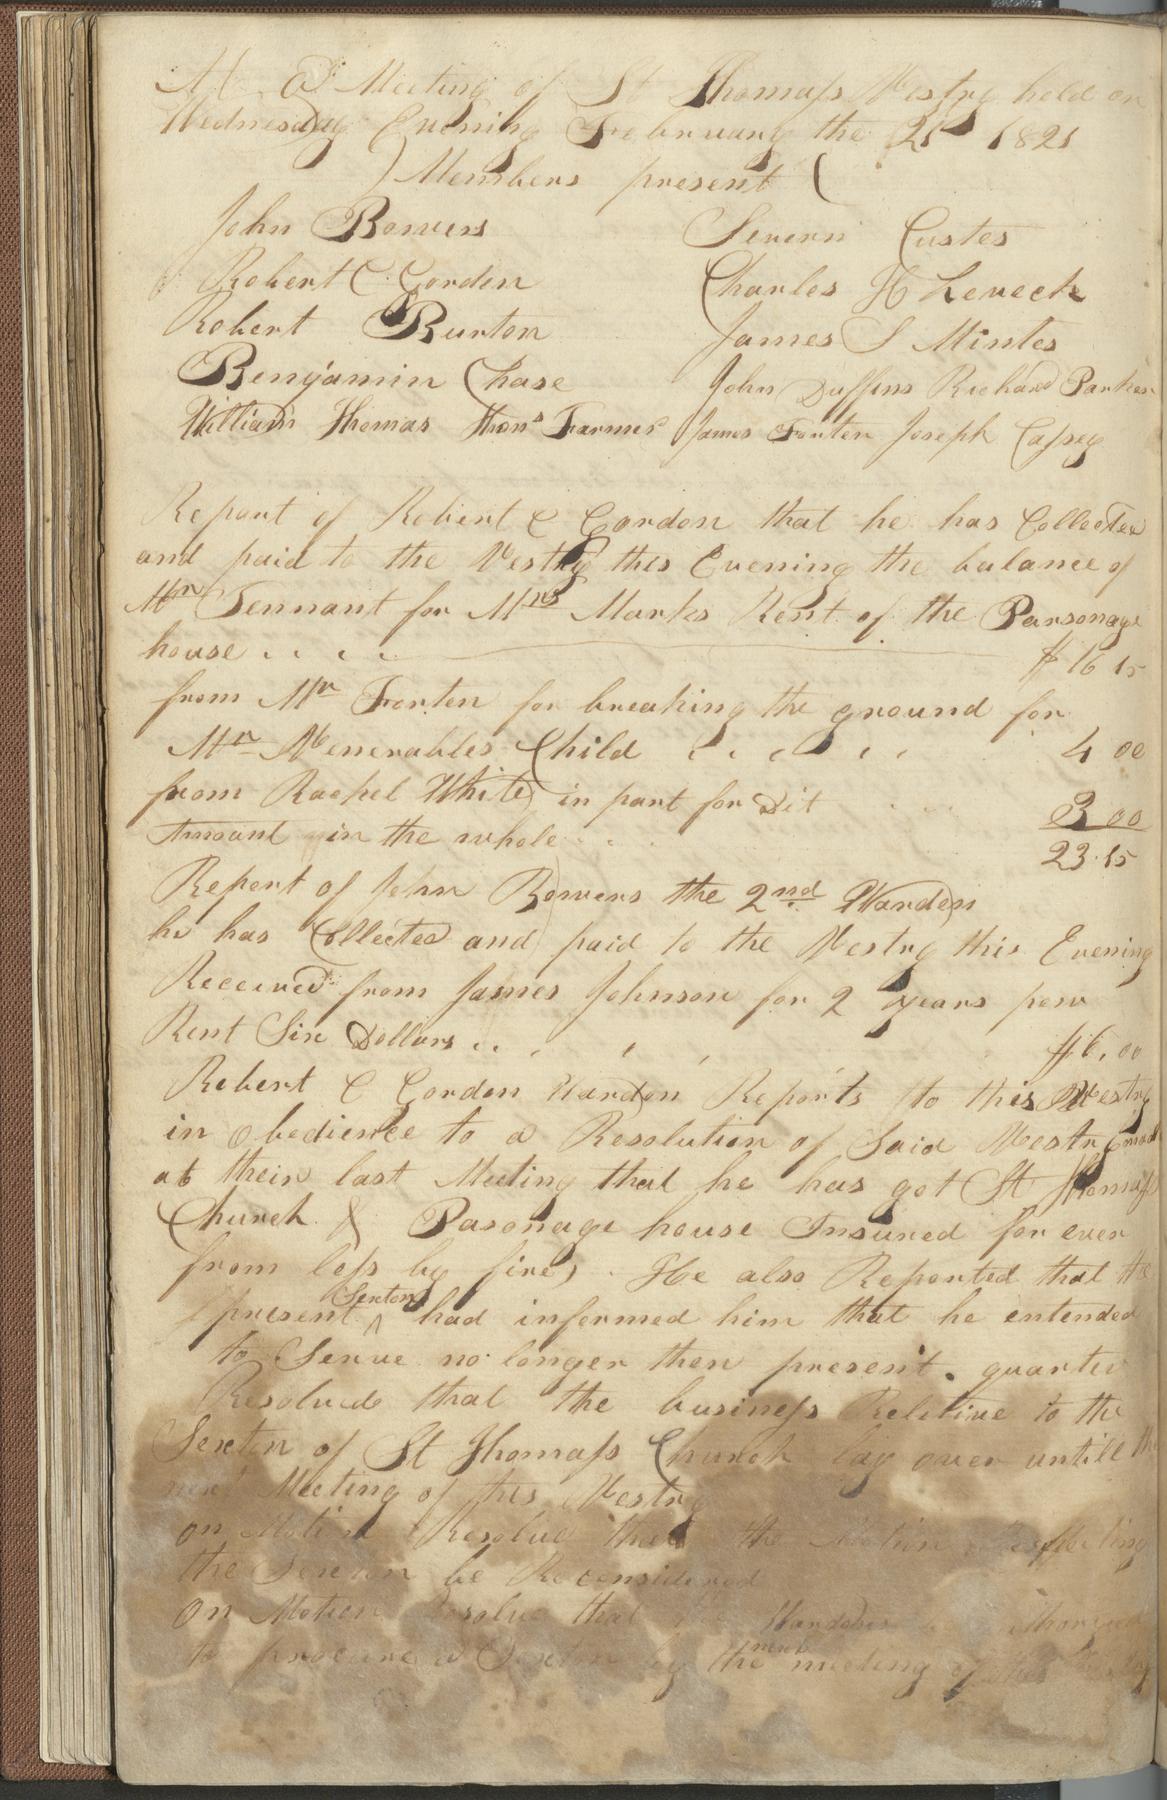 At a Meeting of St Thomass Vestry held on
Wednesday Evening February the 21st 1821
Members present
John Bowers Severn Custes
Robert C Gordon Charles H Leveck
Robert Burton James S Mintes
Benjamin Chase John Duffins Richard Parker
William Thomas Thos Farmer James Forten Joseph Cassey
Report of Robert C Gordon that he has Collected
and paid to the Vestry this Evening the balance of
Mr Tennant for Mrs Marks Rent of the Parsonage
house $16 15
from Mr Forten for breaking the ground for
Mr Venerables Child 4 00
from Rachel White in part for Dit 3 00
Amount in the whole 23.15
Report of John Bowers the 2nd Warden
he has Collected and paid to the Vestry this Evening
Received from James Johnson for 2 years pew
Rent Six Dollars $6,00
Robert C Gordon Warden Reports to this Vestry
in obedience to a Resolution of Said Vestry
at their last Meeting that he has got St Thomass
Church & Pasonage house Insured for ever
from loss by fire, He also Reported that the
present Sexton had informed him that he entended
to Serve no longer then present quarter
Resolved that the business Reletive to the
Sexton of St Thomass Church lay over untill the
next Meeting of this Vestry
on Motion Resolve that the Motion Respecting
the Sexton be Reconsidered
On Motion Resolve that the Wardens be authorized
to procure a Sexton by the next meeting of this Vestry